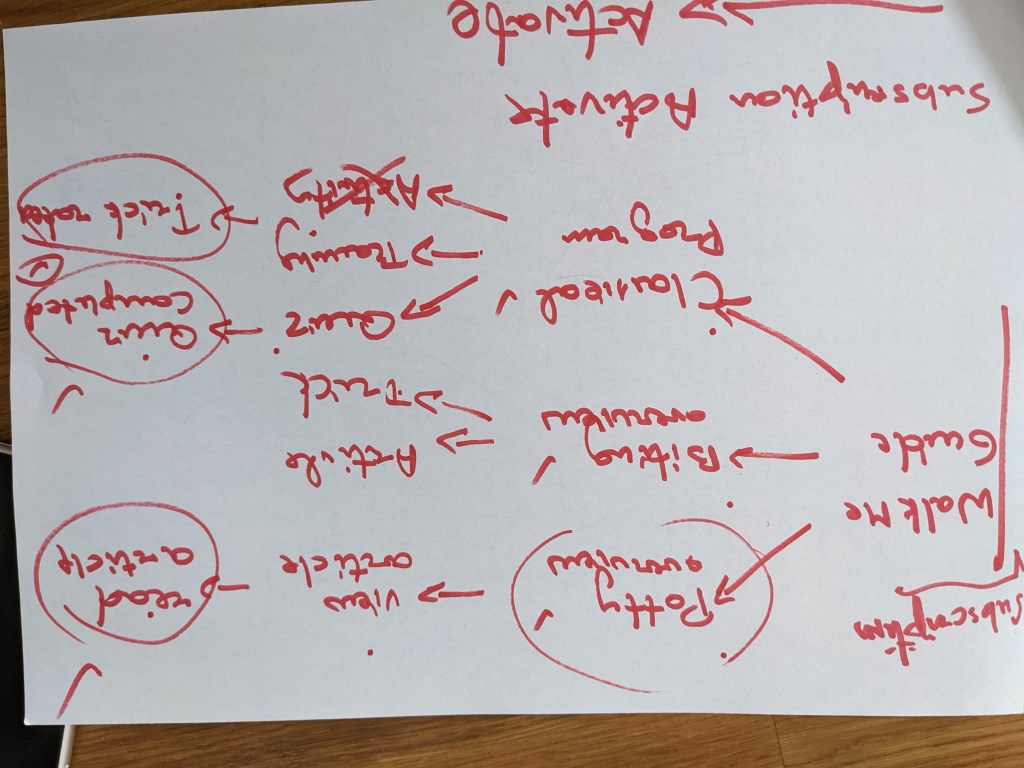 Subscription
Walk Me
Guide
Potty
overview
view
article
read
article
Biting
overview
Article
Trick
Classical
Program
Quiz
Training
Activity
Quiz
Completed
Trick rated
Subscription Activate
Activate